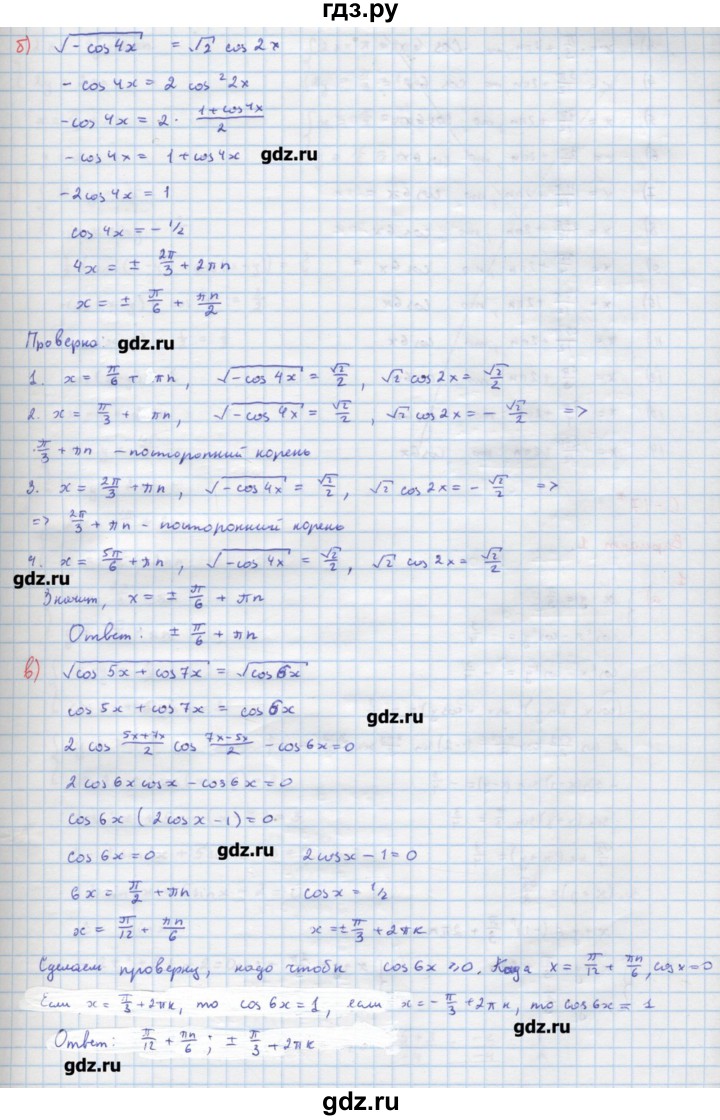 гдз.ру
б) √(-cos 4x) = √2 cos 2x
- cos 4x = 2 cos² 2x
-cos 4x = 2 · (1+cos 4x)/2
- cos 4x = 1 + cos 4x gdz.ru
-2cos 4x = 1
cos 4x = - 1/2
4x = ± 2π/3 + 2πn
x = ± π/6 + πn/2
Проверка: gdz.ru
1. x = π/6 + πn, √(-cos 4x) = √2/2, √2 cos 2x = √2/2
2. x = π/3 + πn, √(-cos 4x) = √2/2, √2 cos 2x = - √2/2 =>
π/3 + πn - посторонний корень
3. x = 2π/3 + πn, √(-cos 4x) = √2/2, √2 cos 2x = - √2/2 =>
=> 2π/3 + πn - посторонний корень
4. x = 5π/6 + πn, √(-cos 4x) = √2/2, √2 cos 2x = √2/2
gdz.ru
Значит, x = ± π/6 + πn
Ответ: ± π/6 + πn
в) √(cos 5x + cos 7x) = √(cos 6x)
cos 5x + cos 7x = cos 6x
gdz.ru
2 cos (5x+7x)/2 cos (7x-5x)/2 - cos 6x = 0
2 cos 6x cos x - cos 6x = 0
cos 6x (2 cos x - 1) = 0
cos 6x = 0 gdz.ru 2cos x - 1 = 0
6x = π/2 + πn cos x = 1/2
x = π/12 + πn/6 x = ± π/3 + 2πk
Сделаем проверку, надо чтобы cos 6x ≥ 0. Когда x = π/12 + πn/6, cos x = 0
Если x = π/3 + 2πk, то cos 6x = 1, если x = - π/3 + 2πk, то cos 6x = 1
gdz.ru
Ответ: π/12 + πn/6; ± π/3 + 2πk
gdz.ru
gdz.ru